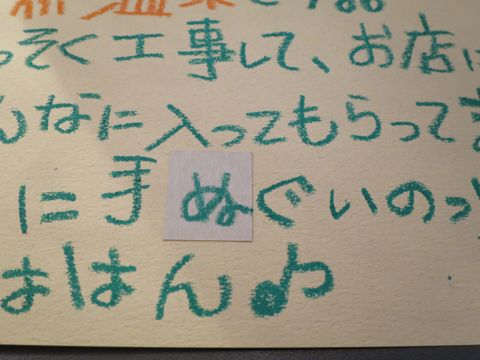 っそく工事して、お店に
んなに入ってもらってま
に手ぬぐいのっ
はん♪